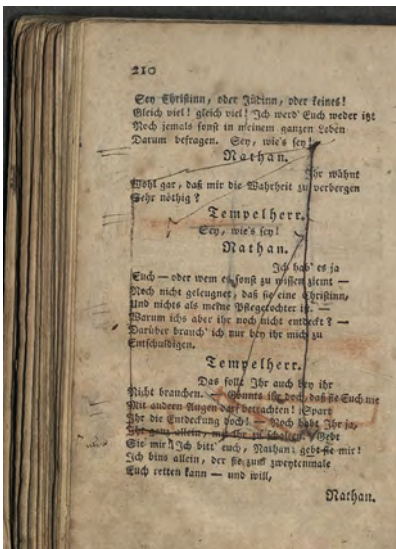 210
Sey Christinn, oder Jüdinn, oder keines!
Gleich viel! gleich viel! Ich werd' Euch weder itzt
Noch jemals sonst in meinem ganzen Leben
Darum befragen. Sey, wie's sey!
Nathan.
Ihr wähnt
Wohl gar, daß mir die Wahrheit zu verbergen
Sehr nöthig?
Tempelherr.
Sey, wie's sey!
Nathan.
Ich hab' es ja
Euch — oder wem es sonst zu wissen ziemt —
Noch nicht geleugnet, daß sie eine Christinn,
Und nichts als meine Pflegetochter ist. —
Warum ichs aber ihr noch nicht entdeckt? —
Darüber brauch' ich nur bey ihr mich zu
Entschuldigen.
Tempelherr.
Das sollt Ihr auch bey ihr
Nicht brauchen. — Gönnts ihr doch, daß sie Euch nie
Mit andern Augen darf betrachten! Spart
Ihr die Entdeckung doch! — Noch habt Ihr ja,
Ihr ganz allein, mit ihr zu schalten. Gebt
Sie mir! Ich bitt' euch, Nathan; gebt sie mir!
Ich bins allein, der sie zum zweytenmale
Euch retten kann — und will,
Nathan.